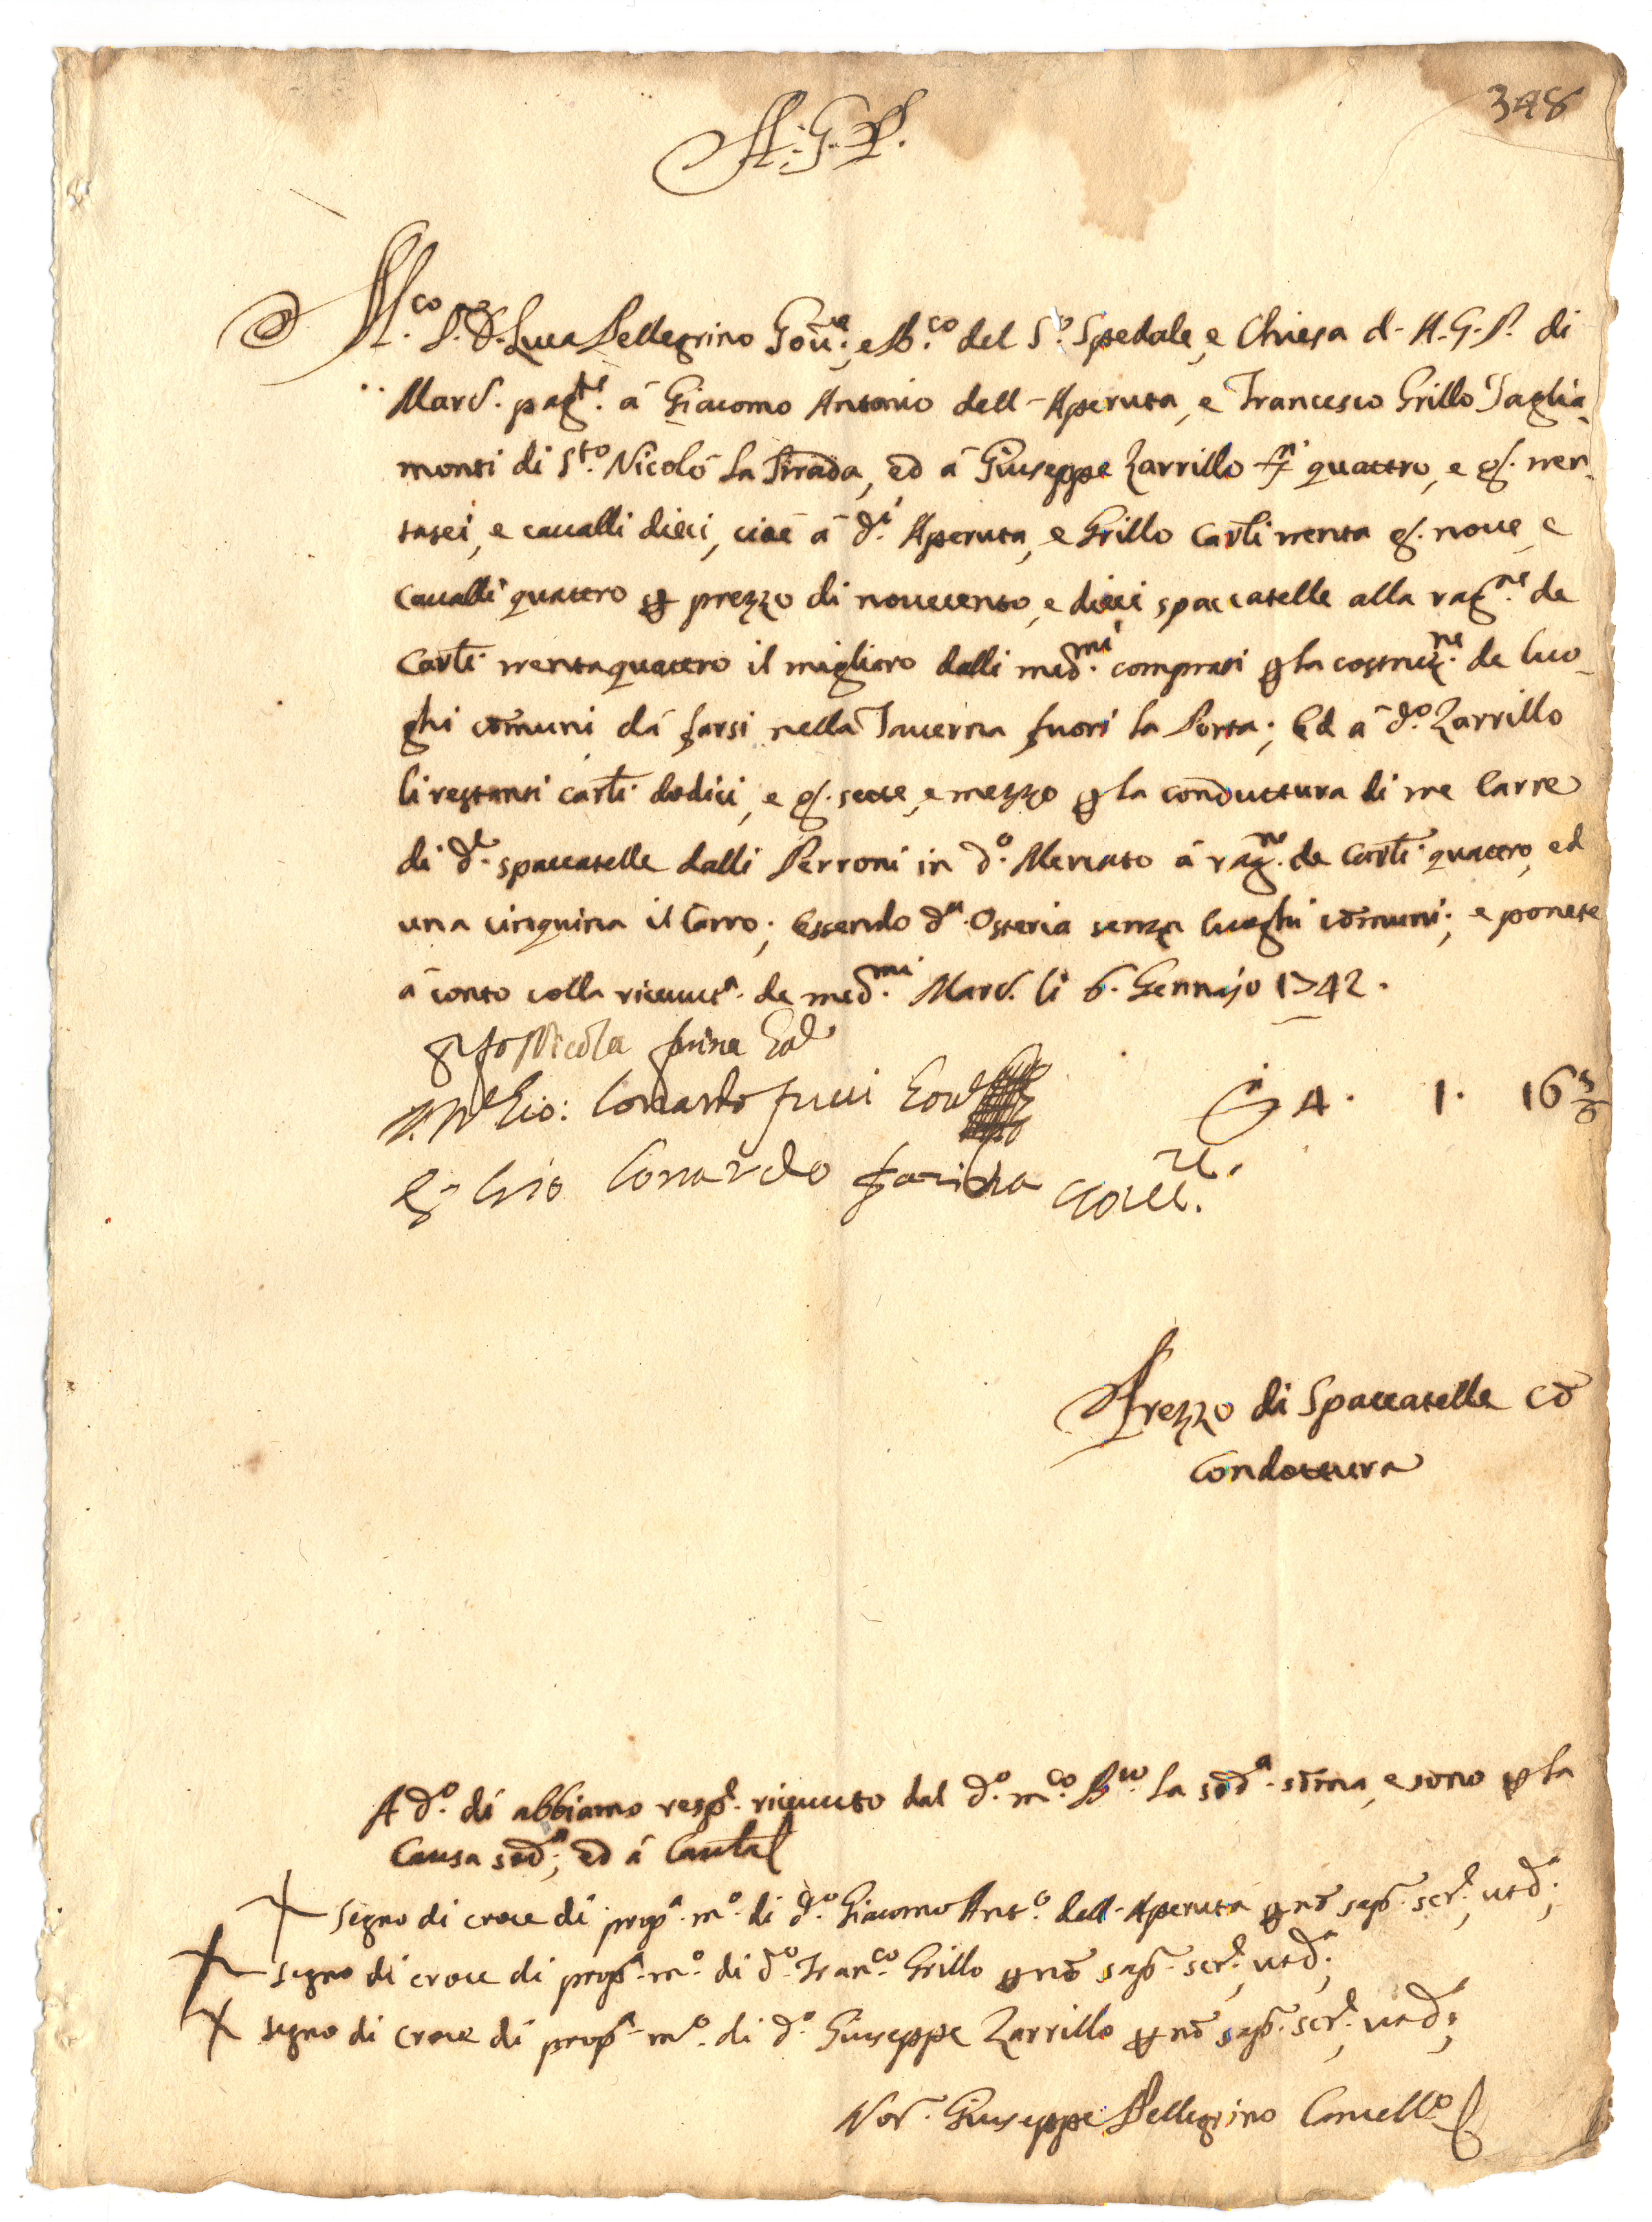 348
A. G. P.
M.co S.r D. Luca Pellegrino Gov.re, e B.co del S.o Spedale, e Chiesa d- A. G. P. di
Marc. pag.te á Giacomo Antonio dell-Aperuta, e Francesco Grillo Taglia-
monti di S.to Nicolò la Strada, ed á Giuseppe Zarrillo quattro, e g. tren-
tasei, e cavalli dieci, cioè á d.i Aperuta, e Grillo Carli trenta g. nove, e
Cavalli quattro p prezzo di novecento, e dieci spaccatelle alla rag.ne de
Carli trentaquattro il migliaro dalli med.mi comprati p la costruz.ne de luo-
ghi comuni dá farsi nella Taverna fuori la Porta; Ed á d.o Zarrillo
li restanti carli dodici, e g. sette, e mezzo p la conduttura di tre Carre
di d.e spaccatelle dalli Perroni in d.o Mercato á rag.ne de Carli quattro, ed
una cinquina il Carro; Essendo d.a Osteria senza luoghi comuni; e ponete
á conto colla ricevut.a de med.mi Marc. li 6. Gennajo 1742.
Nicola
Gio: Conardo
4. 1. 16 5/6
Gio Conardo farina
Prezzo di Spaccatelle cō
Condottura
A d.o di abbiamo resp.e ricevuto dal d.o m.co B.co la sod.a soma, e sono p la
Causa sod.a; ed á Cautel
+ Segno di croce di prop.a m.o di d.o Giacomo Ant.o dell-Aperuta p nō sap.r scr.e, ut d.a;
+ segno di croce di prop.a m.o di d.o Fran.co Grillo p nō sap.r scr.e, ut d.a;
+ segno di croce di prop.a m.o di d.o Giuseppe Zarrillo p nō sap.r scr.e, ut d.a;
Not.r Giuseppe Pellegrino Cancell.o